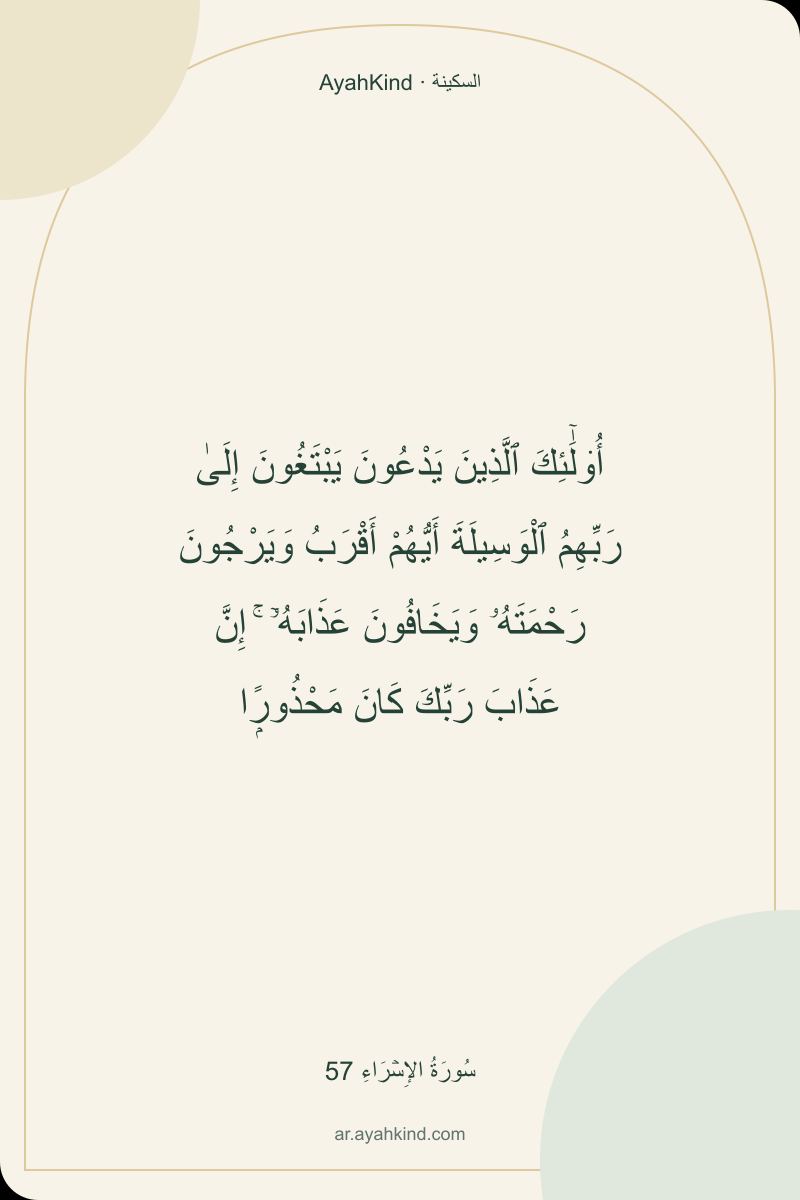 AyahKind · السكينة
أُو۟لَٰٓئِكَ ٱلَّذِينَ يَدْعُونَ يَبْتَغُونَ إِلَىٰ
رَبِّهِمُ ٱلْوَسِيلَةَ أَيُّهُمْ أَقْرَبُ وَيَرْجُونَ
رَحْمَتَهُۥ وَيَخَافُونَ عَذَابَهُۥٓ ۚ إِنَّ
عَذَابَ رَبِّكَ كَانَ مَحْذُورًۭا
سُورَةُ الإِسۡرَاءِ 57
ar.ayahkind.com